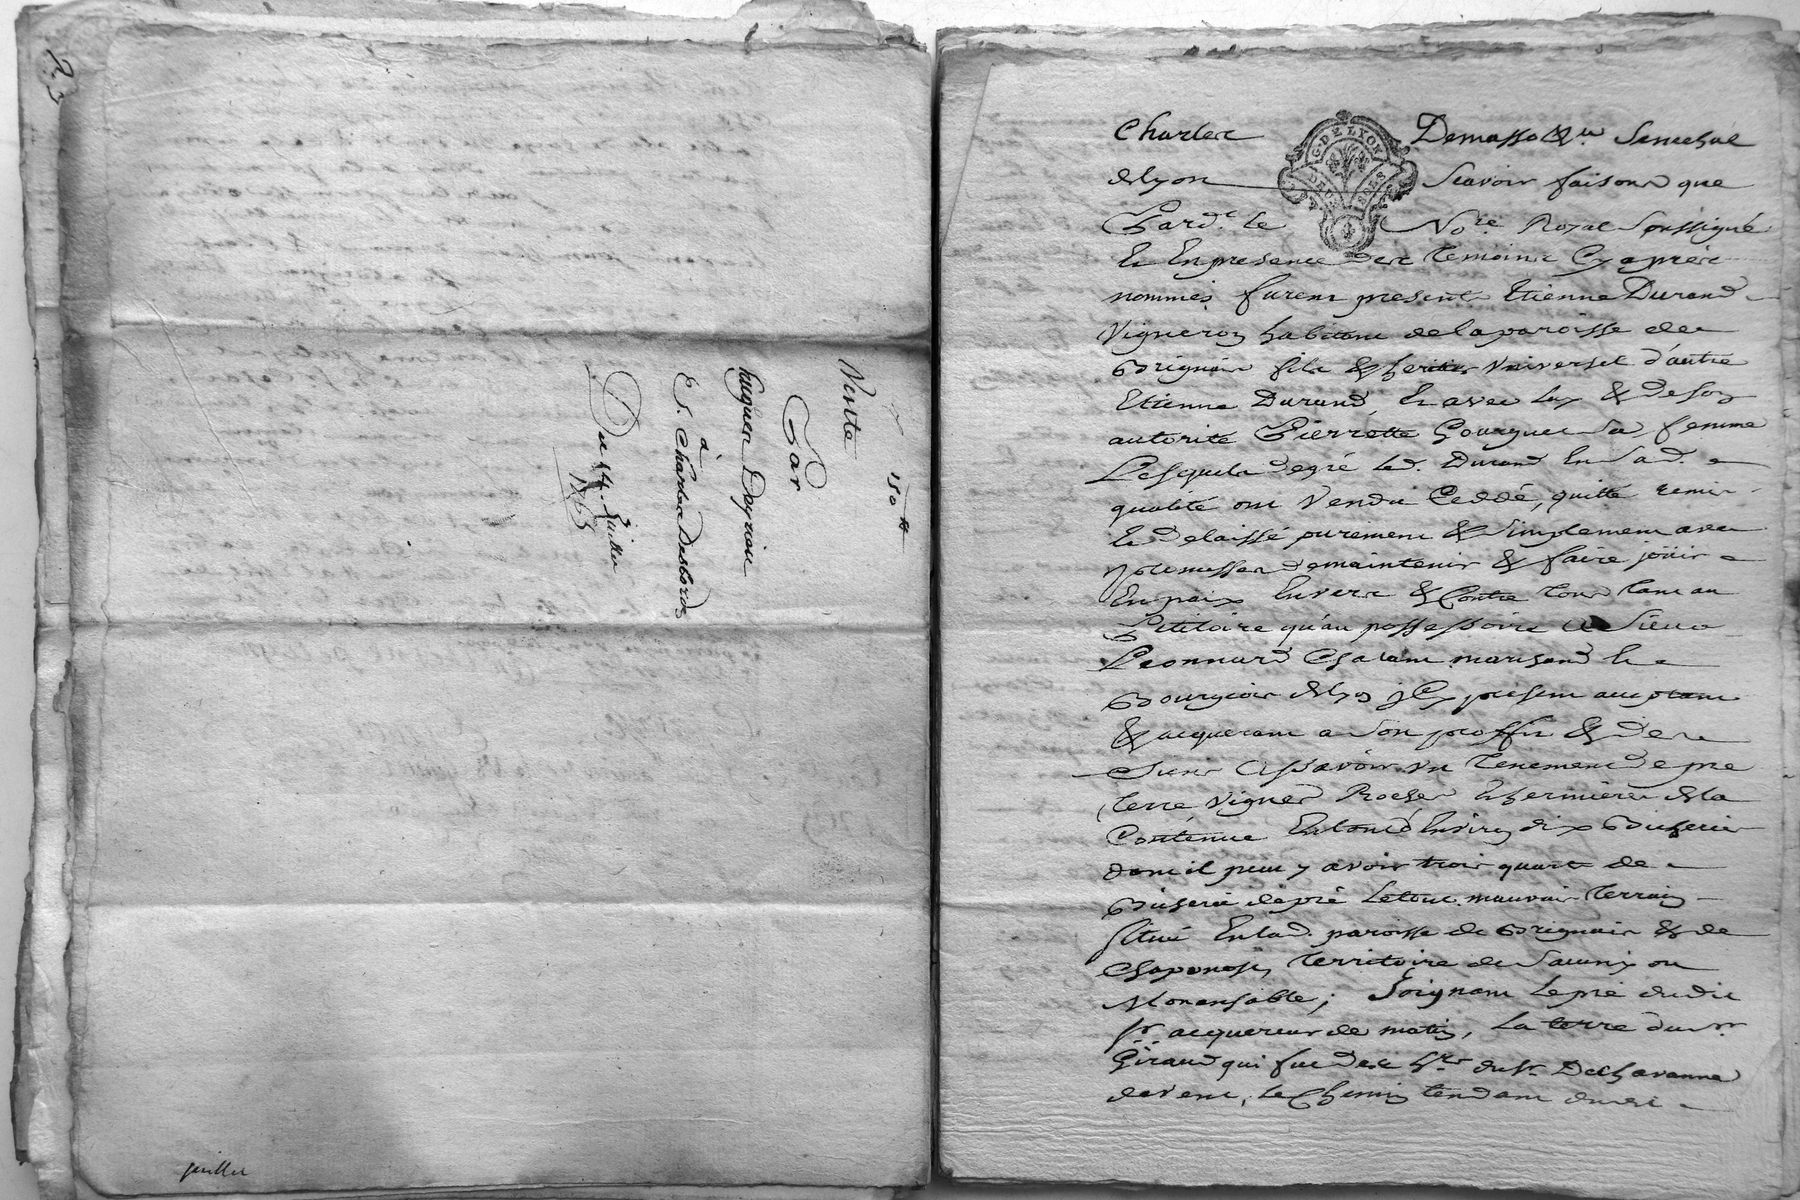 23
150 ₶
Vente
Par
hugues Deyrieu
à
S. Charles Desbordes
Du 14 Juillet
1763
juillet
G. DE LYON
DEUX SOLS
Charles Demasso &a. Senechal
de Lyon Scavoir faisons que
Pard.t le No.re Royal Soussigné
Et En presence des temoins Cy aprés
nommés furent presents Etienne Durand
Vigneron habitant de la paroisse de
Brignais fils & heritier Universel d'autre
Etienne Durand, Et avec luy & de son
autorité Pierrette Gourgues Sa femme
Lesquels de gré led. Durand En Sad.
qualité ont Vendu Ceddé, quitté remis
Et delaissé purement & Simplement avec
promesses de maintenir & faire joüir
En paix Envers & Contre tous tant au
Petitoire qu'au possessoire a Sieur
Leonnard marchand Et
Bourgeois de Lyon jCy present acceptant
& acquerant a Son proffit & des
Siens Assavoir un tenement de pre
terre Vignes Rocher Et hermières de la
Contenue En tout d'Environ dix Bicherées
dont il peut y avoir trois quart de
Bicherée de pré Le tout mauvais terrain
Situé En lad. paroisse de Brignais & de
Chaponost, territoire de ou
; Joignant Le pré dudit
Sr. acquereur de matin, La terre du Sr.
Giraud qui fut des hrs. du Sr. Delhavanne
de vent, Le Chemin tendant dudit